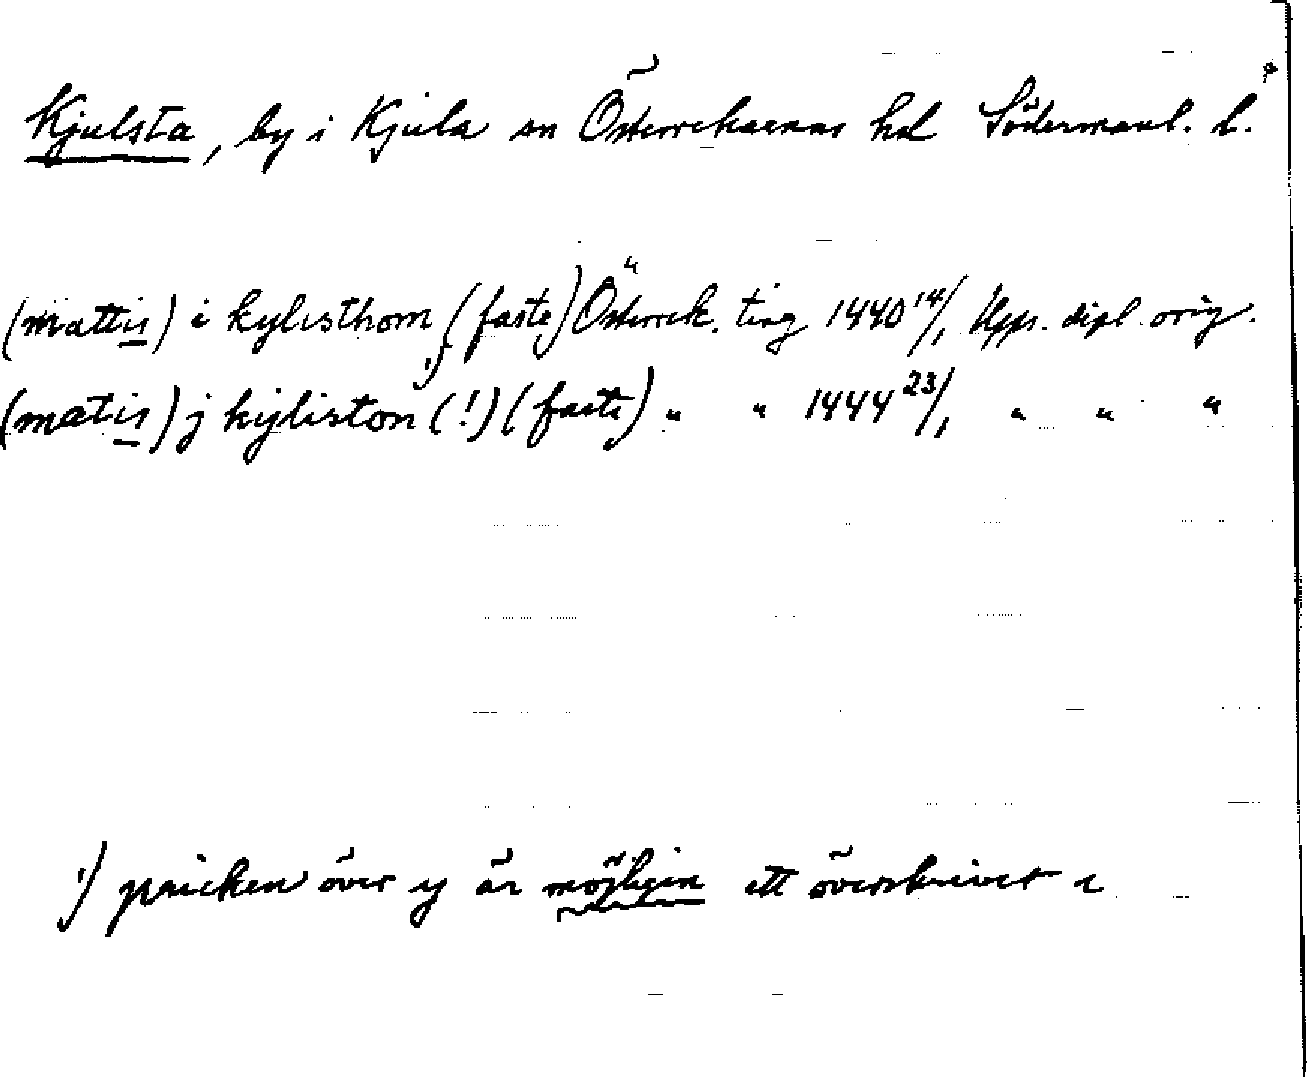 Kjulsta, by i Kjula sn Österrekarnas hd Södermanl. l.
(mattis) i kylisthom (faste) Österrek. ting 1440 14/1 Upps. dipl. orig.
(matis) j kyliston (!) 1) (faste) " " 1444 23/1 " " "
1) pricken över y är möjligen ett överskrivet e